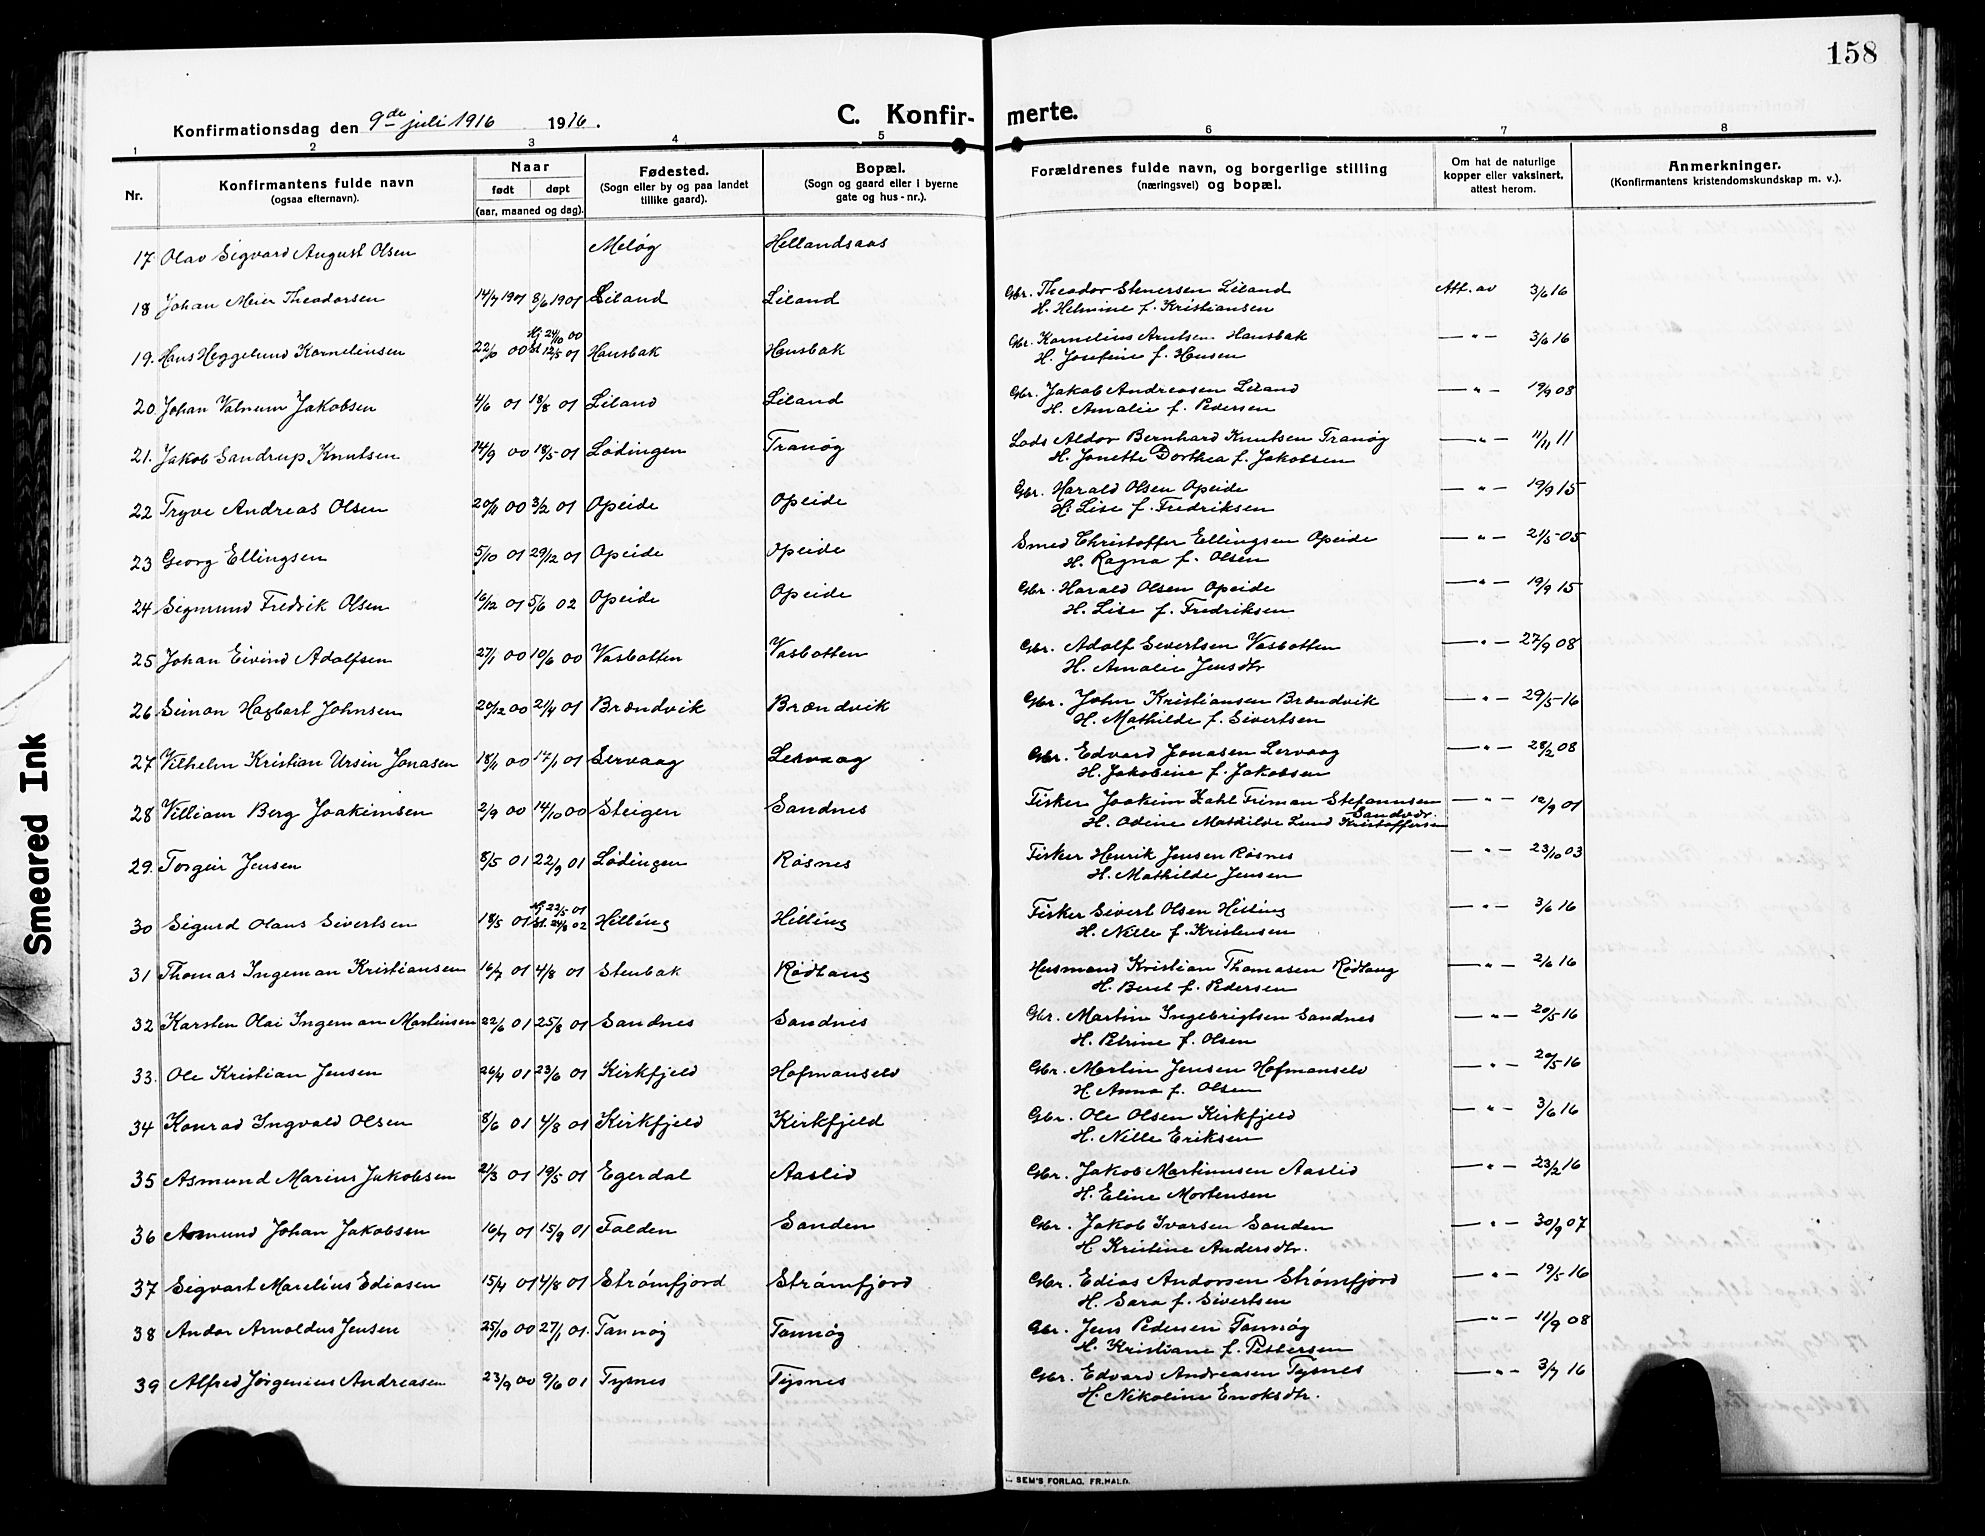 158
Konfirmationsdag den 9de juli 1916 1916.
C. Konfir- merte.
1 2 3 4 5 6 7 8
Nr.
Konfirmantens fulde navn
(ogsaa efternavn).
Naar
født døpt
(aar, maaned og dag).
Fødested.
(Sogn eller by og paa landet
tillike gaard).
Bopæl.
(Sogn og gaard eller i byerne
gate og hus-nr.).
Forældrenes fulde navn, og borgerlige stilling
(næringsvei) og bopæl.
Om hat de naturlige
kopper eller vaksinert,
attest herom.
Anmerkninger.
(Konfirmantens kristendomskundskap m. v.).
17 Olav Sigvard August Olsen Meløg Hellandsaas
18 Johan Meier Theodorsen 14/7 1901 8/6 1901 Liland Liland Gbr. Theodor Stenersen Liland Att. av 3/6 16
H. Helmine f. Kristiansen
19. Hans Heggelund Kornelinsen 22/10 00 Hj 24/10 00 Hansbak Hansbak Gbr. Kornelius Arntsen Hansbak —"— 3/6 16
St 12/5 01 H. Josefine f. Hansen
20. Johan Valnum Jakobsen 4/6 01 18/8 01 Liland Liland Gbr. Jakob Andreasen Liland —"— 19/9 08
H. Amalie f. Pedersen
21. Jakob Sandrup Knutsen 14/9 00 18/5 01 Lødingen Tranøg Lods Aldor Bernhard Knutsen Tranøg —"— 11/11 11
H. Jonette Dorthea f. Jakobsen
22 Tryve Andreas Olsen 20/11 00 3/2 01 Opeide Opeide Gbr. Harald Olsen Opeide —"— 19/9 15
H. Lise f. Fredriksen
23 Georg Ellingsen 5/10 01 29/12 01 Opeide Opeide Smed Christoffer Ellingsen Opeide —"— 21/5-05
H. Ragna f. Olsen
24 Sigmund Fredrik Olsen 16/12 01 5/6 02 Opeide Opeide Gbr. Harald Olsen Opeide —"— 19/9 15
H. Lise f. Fredriksen
25 Johan Eivind Adolfsen 27/1 00 10/6 00 Vasbotten Vasbotten Gbr. Adolf Sivertsen Vasbotten —"— 27/9 08
H. Amalie Jensdtr
26 Simon Hagbart Johnsen 20/12 00 21/4 01 Brændvik Brændvik Gbr. John Kristiansen Brændvik —"— 29/5-16
H. Mathilde f. Sivertsen
27 Vilhelm Kristian Ursin Jonasen 18/11 00 17/1 01 Lervaag Lervaag Gbr. Edvard Jonasen Lervaag —"— 28/2 08
H. Jakobine f. Jakobsen
28 Villiam Berg Joakimsen 2/9 00 14/10 00 Steigen Sandnes Fisker Joakim Zahl Friman Stefannsen —"— 12/9 01
Sandvær.
H. Odine Mathilde Lund Kristoffersen
29. Torgeir Jensen 8/5 01 22/9 01 Lødingen Røsnes Fisker Henrik Jensen Røsnes —"— 23/10 03
H. Mathilde Jensen
30 Sigurd Olaus Sivertsen 18/5 01 Hj 22/5 01 Hilling Hilling Fisker Sivert Olsen Hilling —"— 3/6 16
St. 24/8 02 H. Nille f. Kristensen
31 Thomas Ingeman Kristiansen 16/7 01 4/8 01 Stenbak Rødtang Husmand Kristian Thomasen Rødtang —"— 2/6 16
H. Beret f. Pedersen
32 Karsten Olai Ingeman Martinsen 22/6 01 25/8 01 Sandnes Sandnes Gbr. Martin Ingebrigtsen Sandnes —"— 20/5-16
H. Petrine f. Olsen
33. Ole Kristian Jensen 26/4 01 23/6 01 Kirkfjeld Hofmanselv Gbr. Martin Jensen Hofmanselv —"— 20/5-16
H Anna f. Olsen
34 Konrad Ingvald Olsen 8/6 01 4/8 01 Kirkfjeld Kirkfjeld Gbr. Ole Olsen Kirkfjeld —"— 3/6 16
H. Nille Eriksen
35 Asmund Marius Jakobsen 21/3 01 19/5 01 Egerdal Aaslid Gbr. Jakob Martinusen Aaslid —"— 23/2 16
H. Eline Mortensen
36 Asmund Johan Jakobsen 16/7 01 15/9 01 Falden Sanden Gbr. Jakob Ivarsen Sanden —"— 30/9 07
H Kristine Andersdtr.
37 Sigvart Marelius Ediasen 15/4 01 4/8 01 Strømfjord Strømfjord Gbr. Edias Andorsen Strømfjord —"— 19/5 16
H. Sara f. Sivertsen
38 Andor Arnoldus Jensen 25/10 00 27/1 01 Tannøg Tannøg Gbr. Jens Pedersen Tannøg —"— 11/9 08
H. Kristiane f. Pettersen
39 Alfred Jørgenius Andreasen 23/9 00 9/6 01 Tysnes Tysnes Gbr. Edvard Andreasen Tysnes —"— 3/7 16
H. Nikoline Enoksdtr.
SEM'S FORLAG, FR.HALD.
Smeared Ink